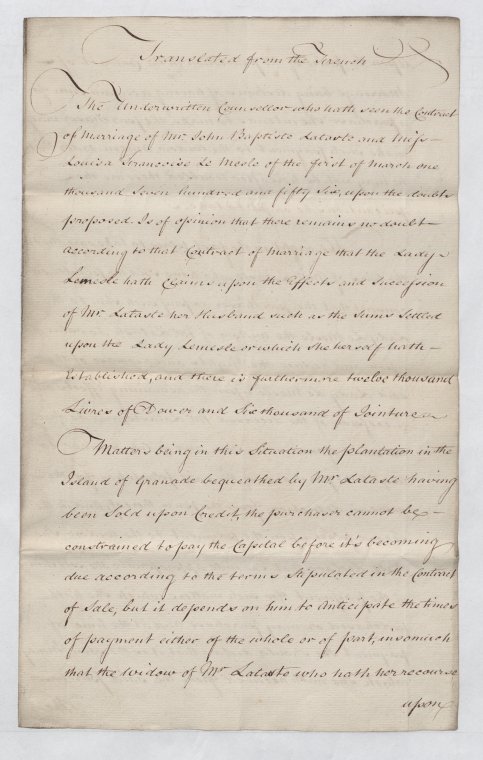 Translated from the French
The Underwritten Counsellor who hath seen the Contract
of Marriage of Mr. John Baptiste Lataste and Miss
Louisa Francoise Le Mesle of the first of March one
thousand Seven hundred and fifty Six, upon the doubts
proposed. Is of opinion that there remains no doubt
according to that Contract of Marriage that the Lady
Lemesle hath Claims upon the Effects and Succession
of Mr. Lataste her Husband such as the Sums Settled
upon the Lady Lemesle or which She herself hath
Established, and there is furthermore twelve thousand
Livres of Dower and Six thousand of Jointure
Matters being in this Situation the plantation in the
Island of Granade bequeathed by Mr. Lataste having
been Sold upon Credit, the purchaser cannot be
constrained to pay the Capital before it's becoming
due according to the terms Stipulated in the Contract
of Sale, but it depends on him to Anticipate the times
of payment either of the whole or of part, insomuch
that the Widow of Mr. Lataste who hath her recourse
upon